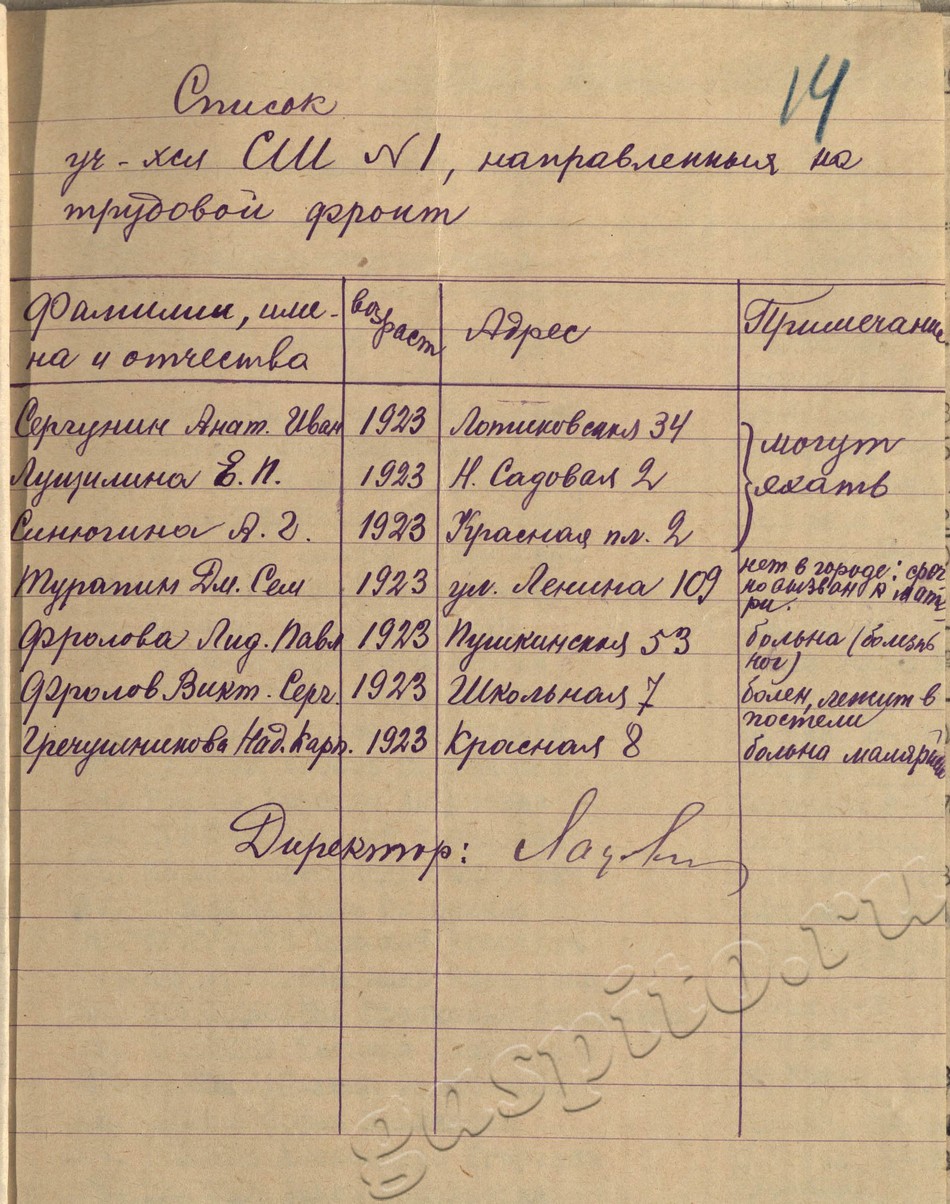 14
Список
уч-хся СШ N1, направленныя на
трудовой фронт
Фамилии, име-
на и отчества
воз
раст
Адрес
Примечание
Сергунин Анат. Иван 1923 34
Лущилина Е. П. 1923 Н. Садовая 2
Синюгина А. Г. 1923 Красная пл. 2
могут
ехать
Турапин Дм. Сем 1923 ул. Ленина 109
нет в городе: сроч
но вызван к мате
ри.
Фролова Лид. Павл 1923 Пушкинская 53
больна (болезнь
ног)
Фролов Викт. Серг. 1923 Школьная 7
болен, лежит в
постели
Гречушникова Над. Карп. 1923 Красная 8 больна малярией
Директор:
gaspito.ru